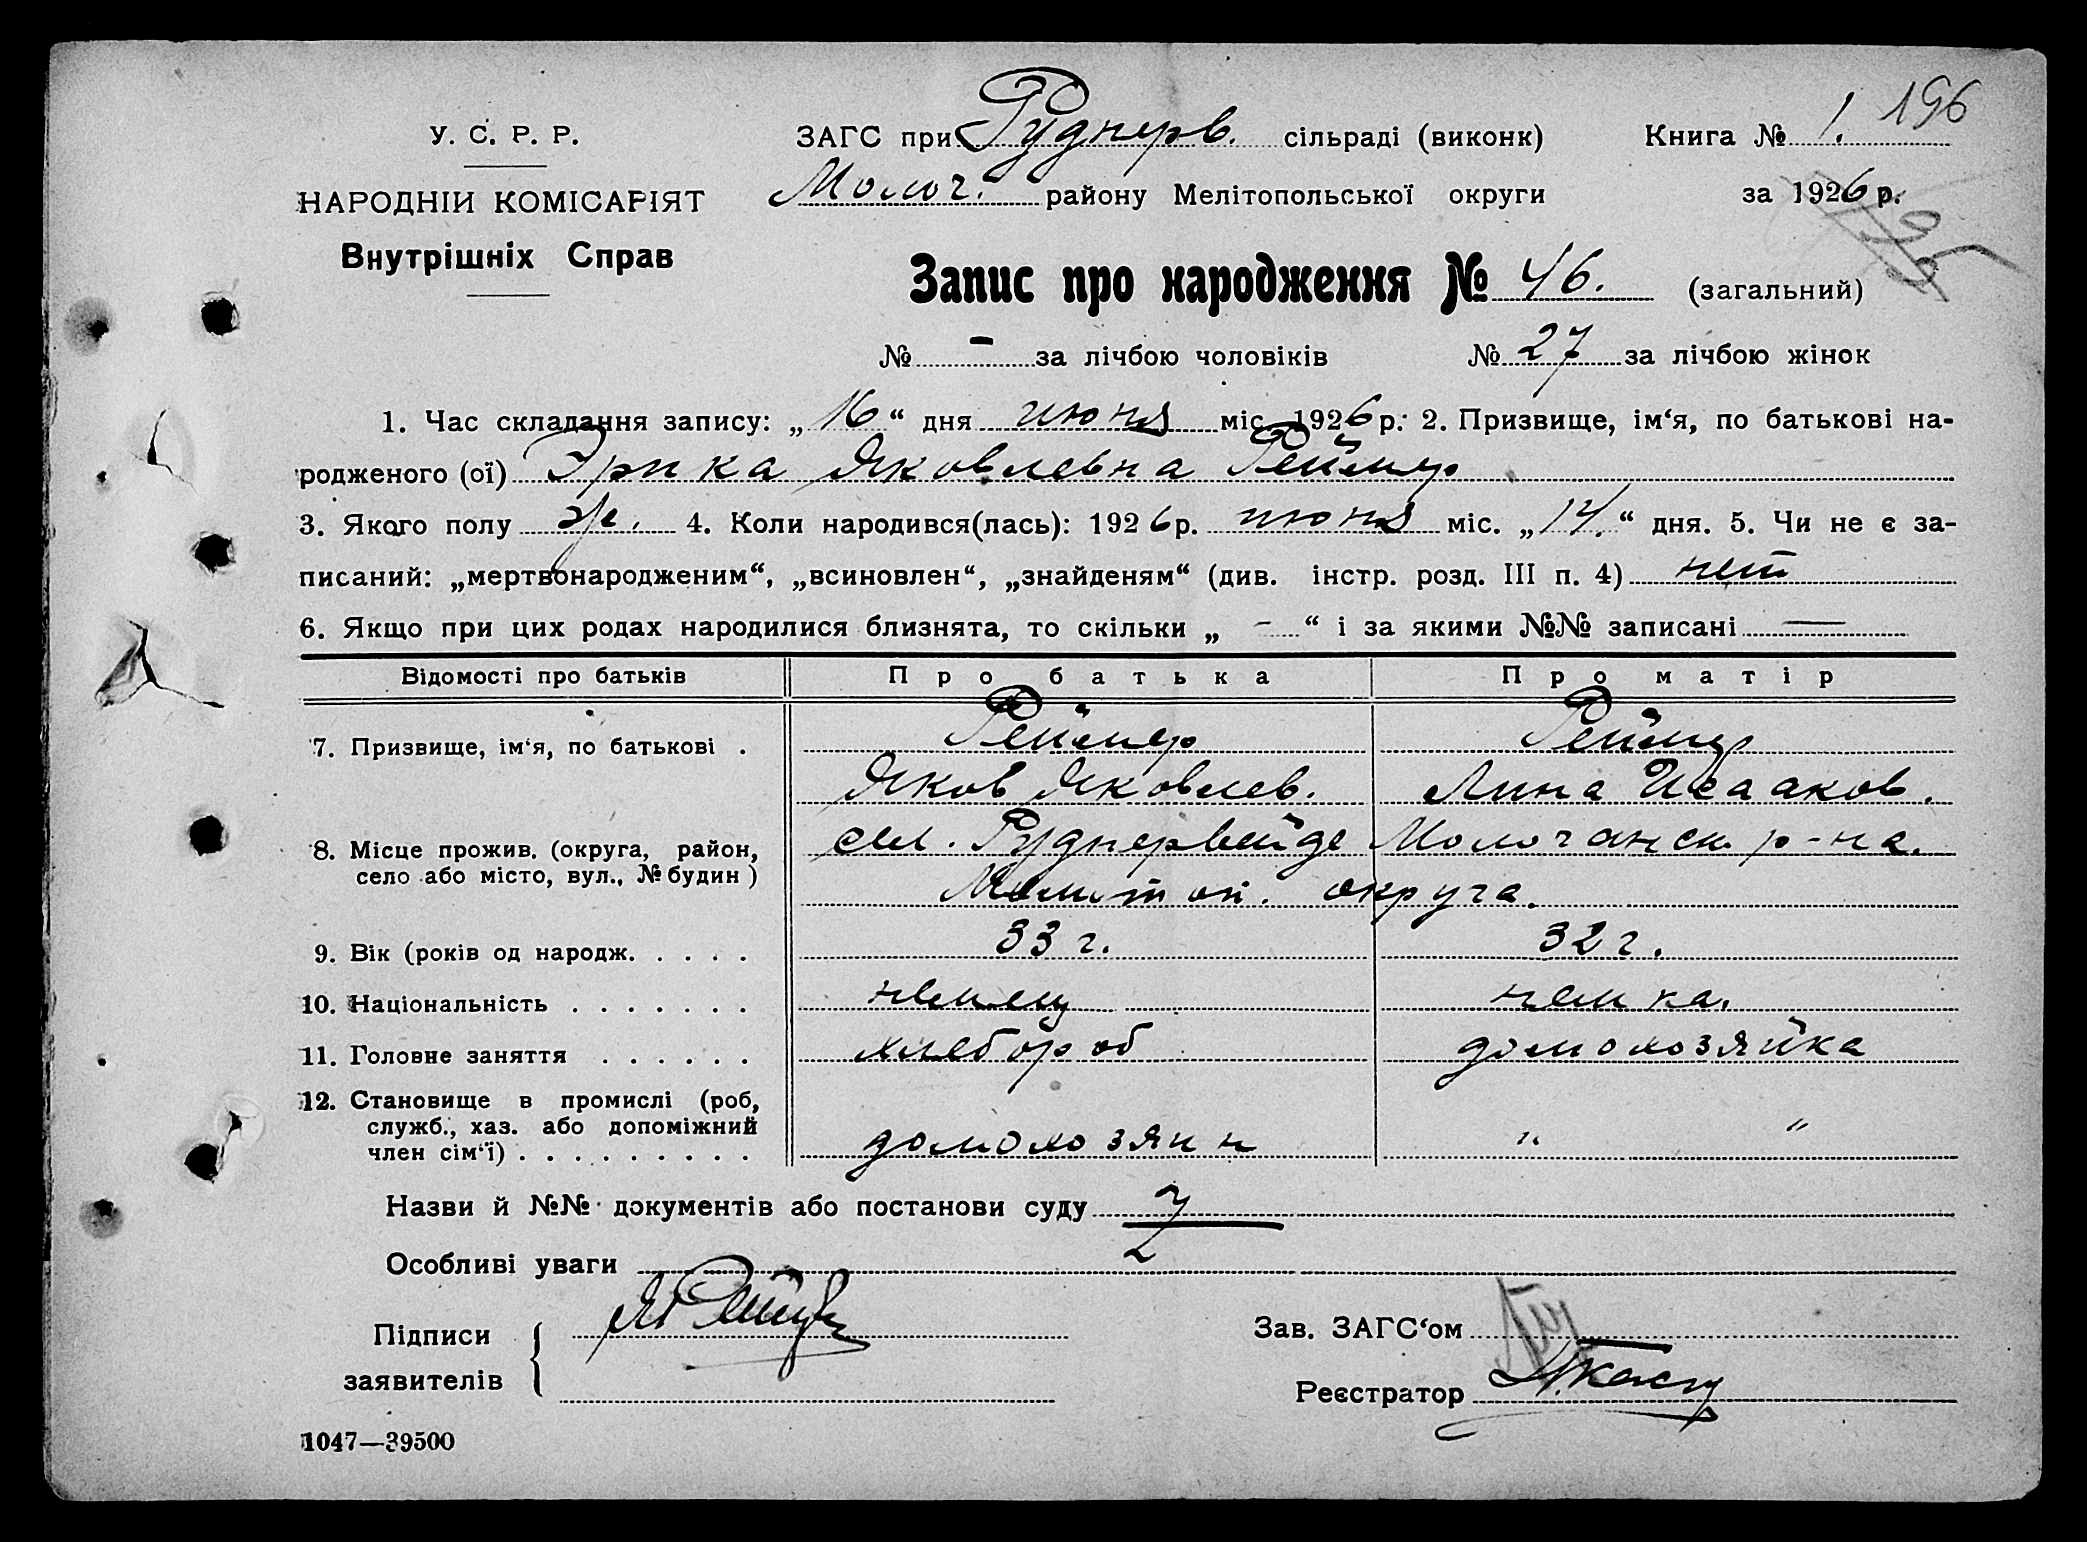 196
У. С. Р. Р.
ЗАГС при Руднерв. сільраді (виконк)
Книга № 1.
НАРОДНІЙ КОМІСАРІЯТ
Молоч. району Мелітопольської округи
за 1926 р.
Внутрішніх Справ
Запис про народження № 46. (загальний)
№ - за лічбою чоловіків № 27 за лічбою жінок
1. Час складання запису: „16“ дня июня міс. 1926 р. 2. Призвище, ім‘я, по батькові на-
родженого (ої) Эрика Яковлевна Реймер
3. Якого полу ж. 4. Коли народився(лась): 1926 р. июня міс. „14“ дня. 5. Чи не є за-
писаний: „мертвонародженим“, „всиновлен“, „знайденям“ (див. інстр. розд. III п. 4) нет
6. Якщо при цих родах народилися близнята, то скільки „ - “ і за якими №№ записані —
Відомості про батьків Про батька Про матір
7. Призвище, ім‘я, по батькові . Реймер Реймер
Яков Яковлев. Лина Исааков.
8. Місце прожив. (округа, район, село або місто, вул., № будин) сел. Руднервейде Молочанск. р-на.
Мелитоп. округа.
9. Вік (років од народж. . . . . 33 г. 32 г.
10. Національність . . . . . . . немец немка.
11. Головне заняття . . . . . . хлебороб домохозяйка
12. Становище в промислі (роб, служб., хаз. або допоміжний член сім‘ї) . . . . . . . . . домохозяин " "
Назви й №№ документів або постанови суду
Особливі уваги
Підписи
заявителів
Зав. ЗАГС‘ом
Реєстратор
1047—39500